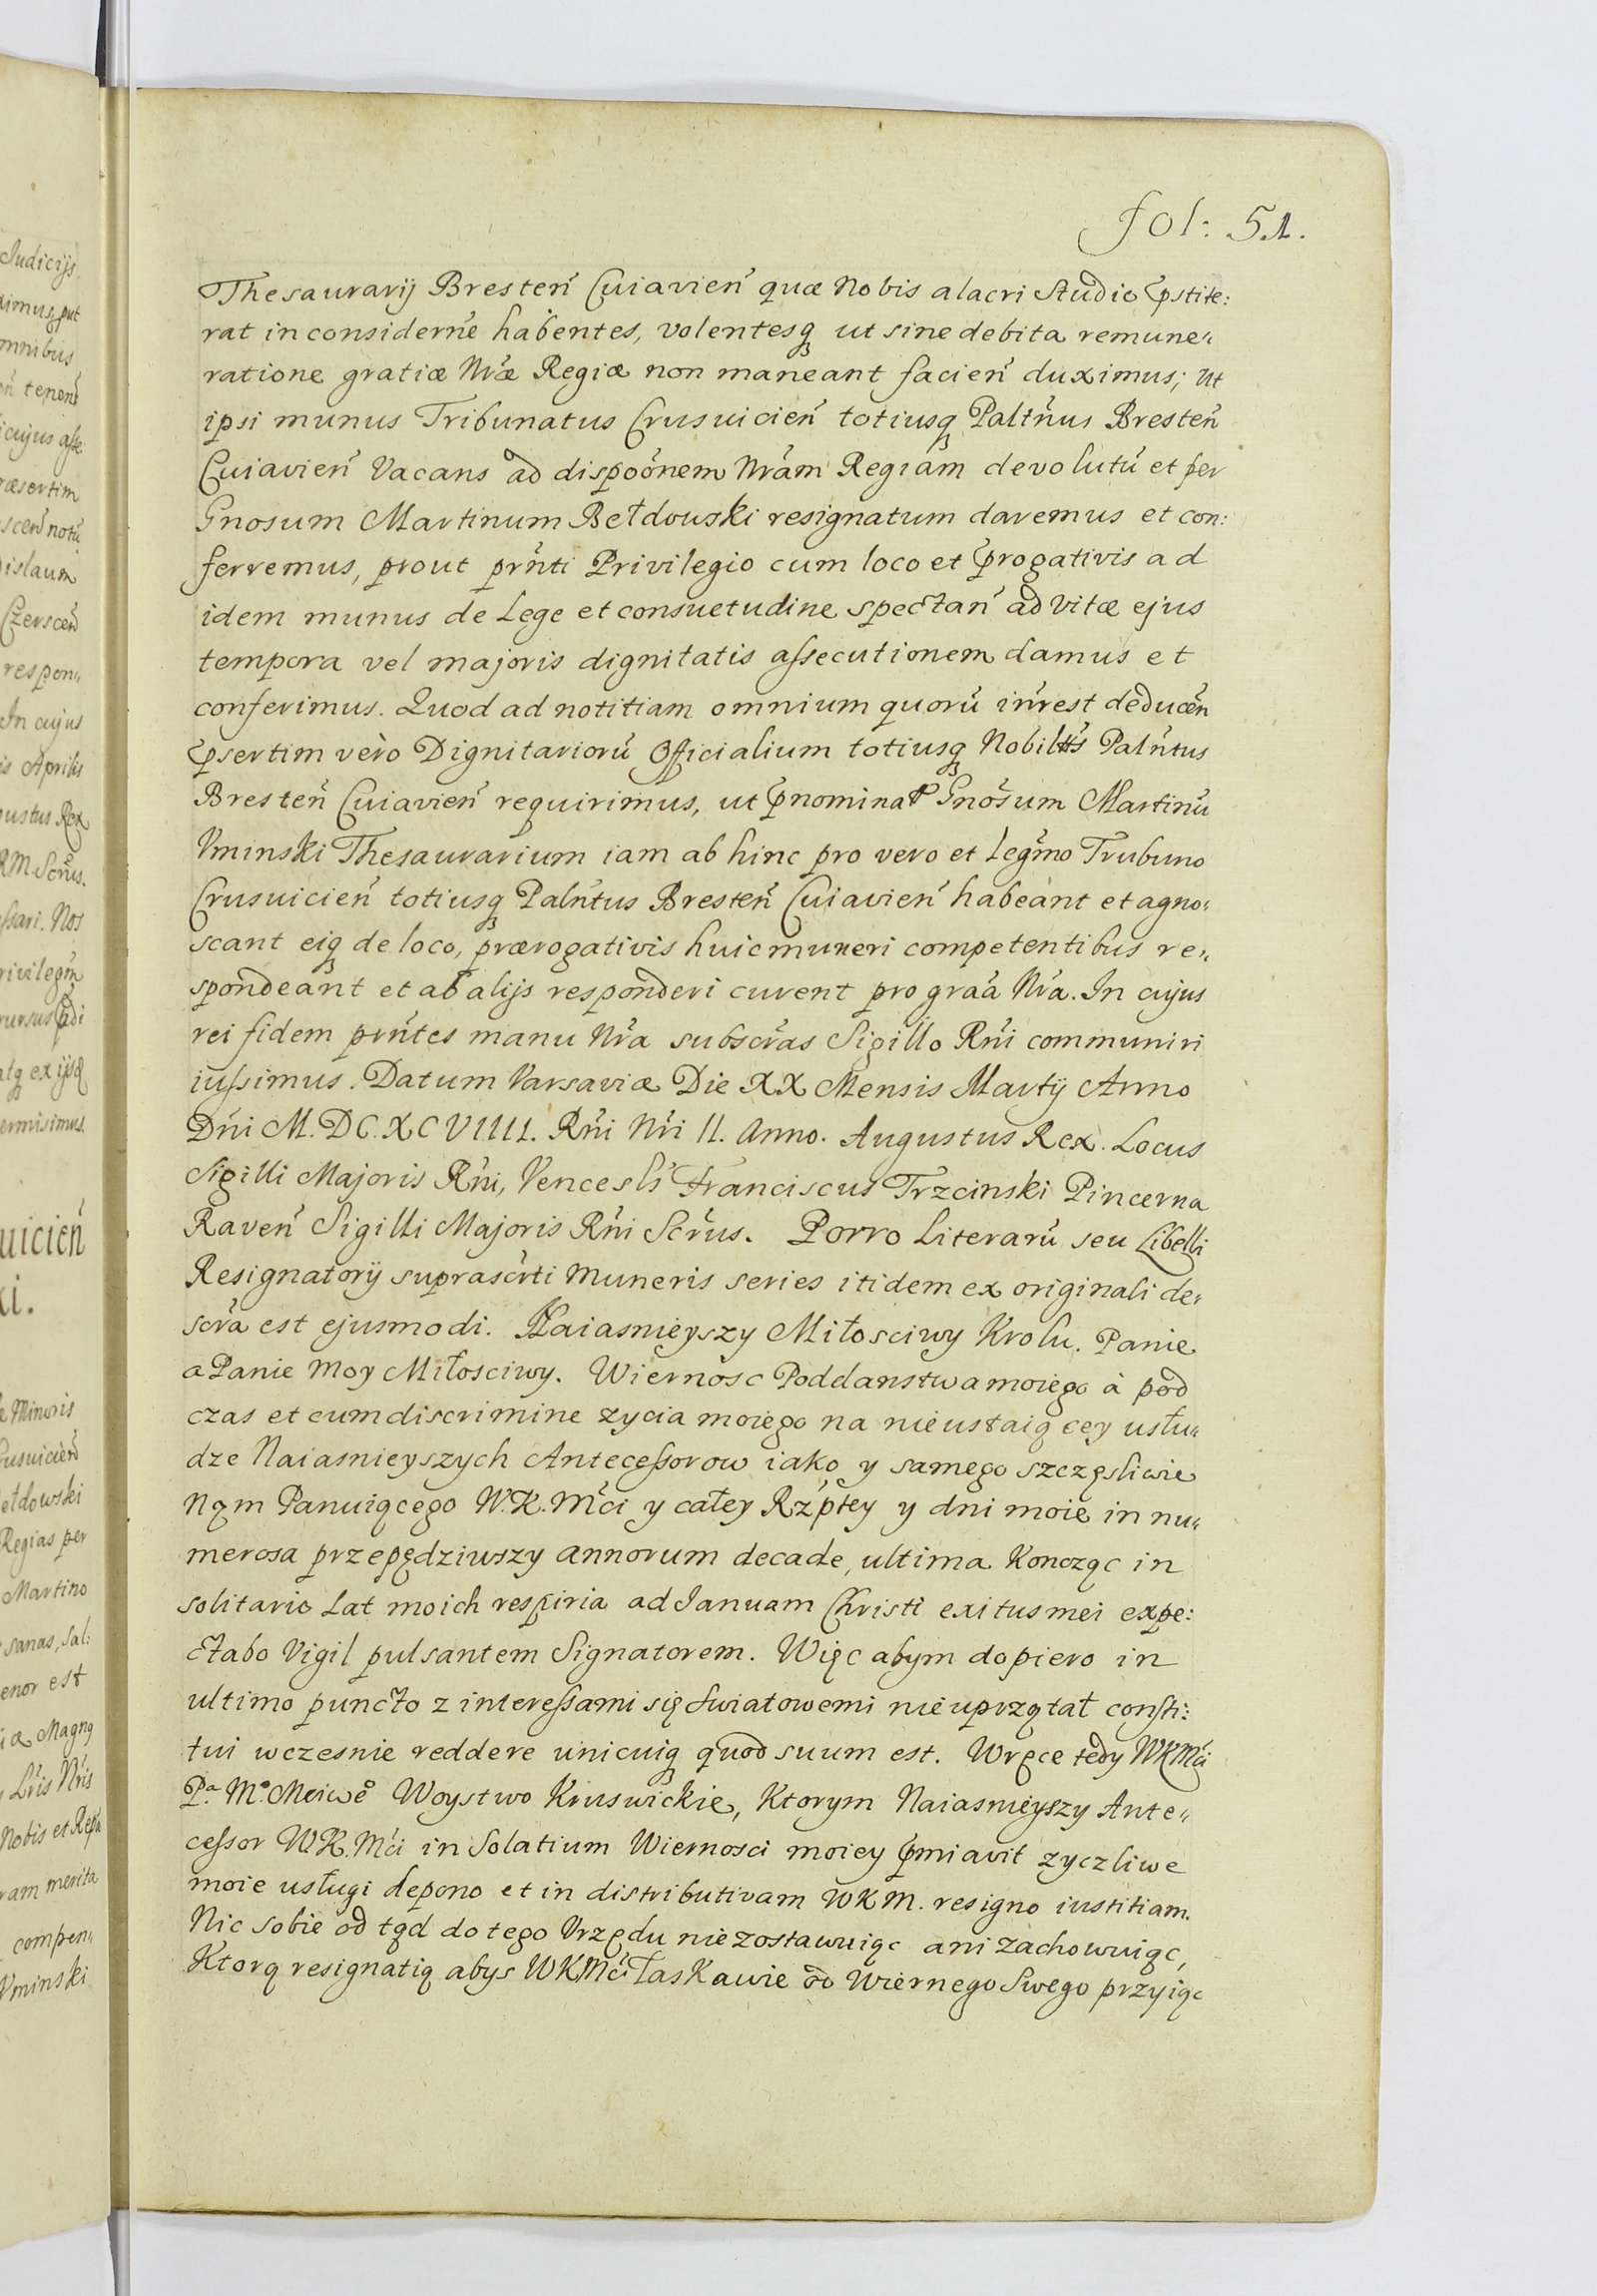 fol: 51.
Thesaurarij Bresteń Cuiavień quæ Nobis alacri Studio p̄stite:
rat in considerńe habentes, volentesq̨ ut sine debita remune„
ratione gratiæ Nræ Regiæ non maneant facień duximus; Ut
ipsi munus Tribunatus Crusvicień totiusq̨ Paltńus Bresteń
Cuiavień Vacans ad dispoónem Nrám Regiám devolutú et per
Gnosum Martinum Bełdowski resignatum daremus et con:
ferremus, prout prńti Privilegio cum loco et p̄rogativis ad
idem munus de Lege et consuetudine spectań ad vitæ ejus
tempora vel majoris dignitatis aſsecutionem damus et
conferimus. Quod ad notitiam omnium quorú inrest deducéń
p̄sertim vero Dignitariorú Officialium totiusq̨ Nobiltis Palńtus
Bresteń Cuiavień requirimus, ut p̄nominat Gnósum Martinú
Uminski Thesaurarium iam ab hinc pro vero et Legm̃o Trubuno
Crusvicień totiusq̨ Palńtus Bresteń Cuiavień habeant et agno„
scant eiq̨ de loco, prærogativis huic muneri competentibus re„
spondeant et ab alijs responderi curent pro graá Nrá. In cujus
rei fidem prńtes manu Nrá subscrás Sigillo Rńi communiri
iuſsimus. Datum Varsaviæ Die XX Mensis Martij Anno
Dńi M.DC.XCVIIII. Rńi Nri II. Anno. Augustus Rex. Locus
Sigilli Majoris Rńi, Vencesls Franciscus Trzcinski Pincerna
Raveń Sigilli Majoris Rńi Scrús. Porro Literarú seu Libelli
Resignatorij suprascrti Muneris series itidem ex originali de„
scrá est ejusmodi. Naiasnieyszy Miłosciwy Krolu. Panie
a Panie Moy Miłosciwy. Wiernosc Poddanstwa moiego á pod
czas et cum discrimine zycia moiego na nieustaiącey usłu„
dze Naiasnieyszych Anteceſsorow iako y samego szczęsliwie
Nąm Panuiącego W.K.Mći y całey Rzptey y dni moie in nu„
merosa przepędziwszy annorum decade, ultima Kończąc in
solitario Lat moich respiria ad Januam Christi exitus mei expe:
ctabo Vigil pulsantem Signatorem. Więc abym dopiero in
ultimo puncto z intereſsami się Swiatowemi nie uprzątał consti:
tui wczesnie reddere unicuiq̨ quod suum est. Wręce tedy WKMći
Pa Mo Meiwo Woystwo Kruswickie, Ktorym Naiasnieyszy Ante„
ceſsor W.K.Mći in Solatium Wiernosci moiey p̄miavit zyczliwe
moie usługi depono et in distributivam WKM. resigno iustitiam.
Nic sobie od tąd do tego Vrzędu niezostawuiąc ani zachowuiąc,
Ktorą resignatią abys WKMći Łaskawie od Wiernego Swego przyiąc